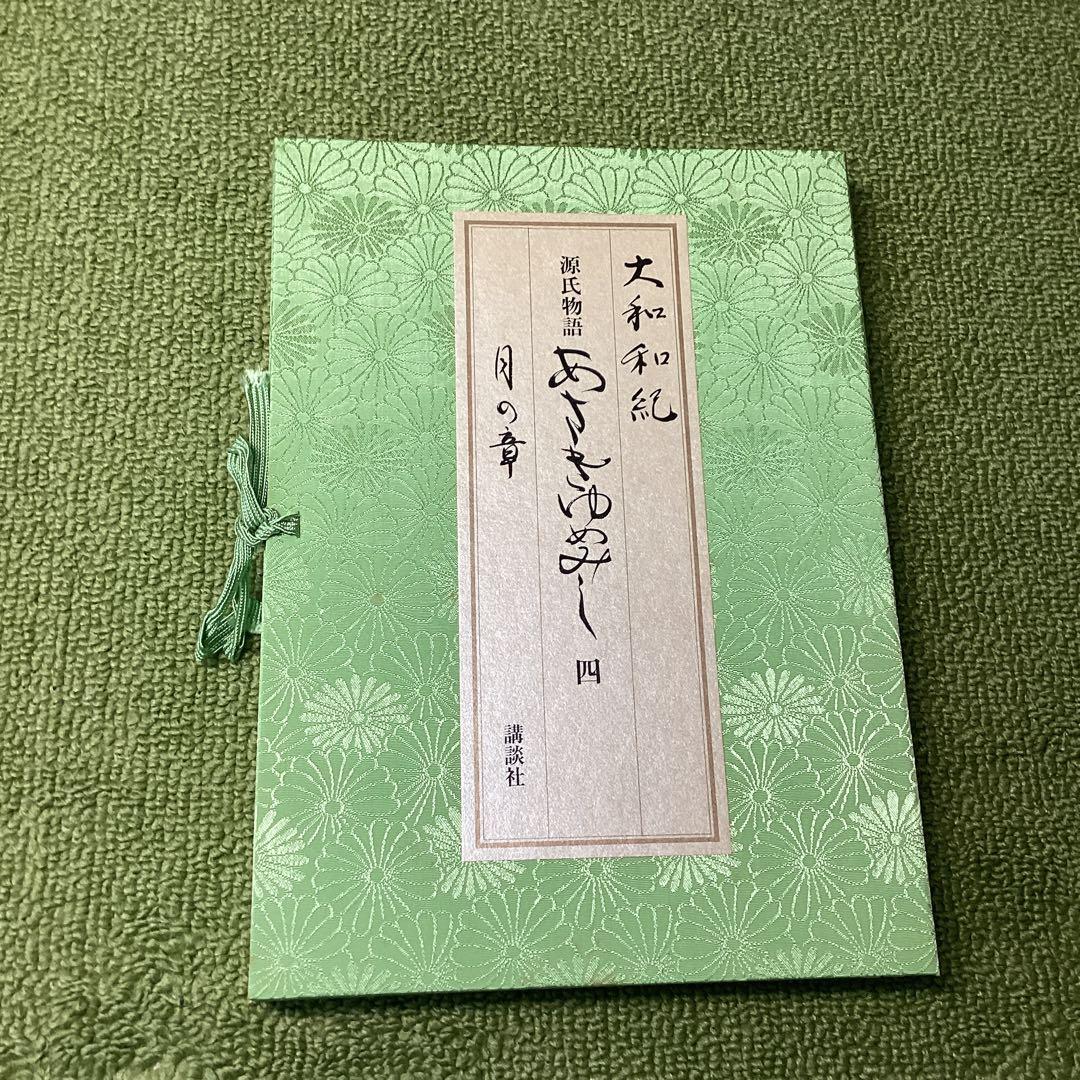 大和和紀
源氏物語 あさきゆめみし 四
月の章
講談社